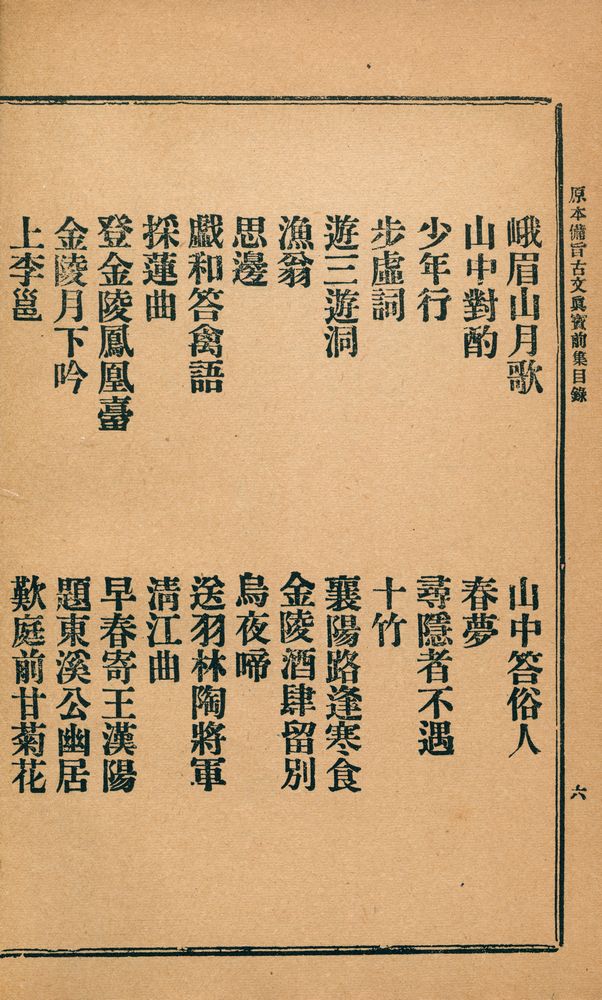 原本備旨古文眞寶前集目錄
六
峨眉山月歌
山中答俗人
山中對酌
春夢
少年行
尋隱者不遇
步虛詞
十竹
遊三遊洞
襄陽路逢寒食
漁翁
金陵酒肆留別
思邊
烏夜啼
戱和答禽語
送羽林陶將軍
採蓮曲
淸江曲
登金陵鳳凰臺
早春寄王漢陽
金陵月下吟
題東溪公幽居
上李邕
歎庭前甘菊花